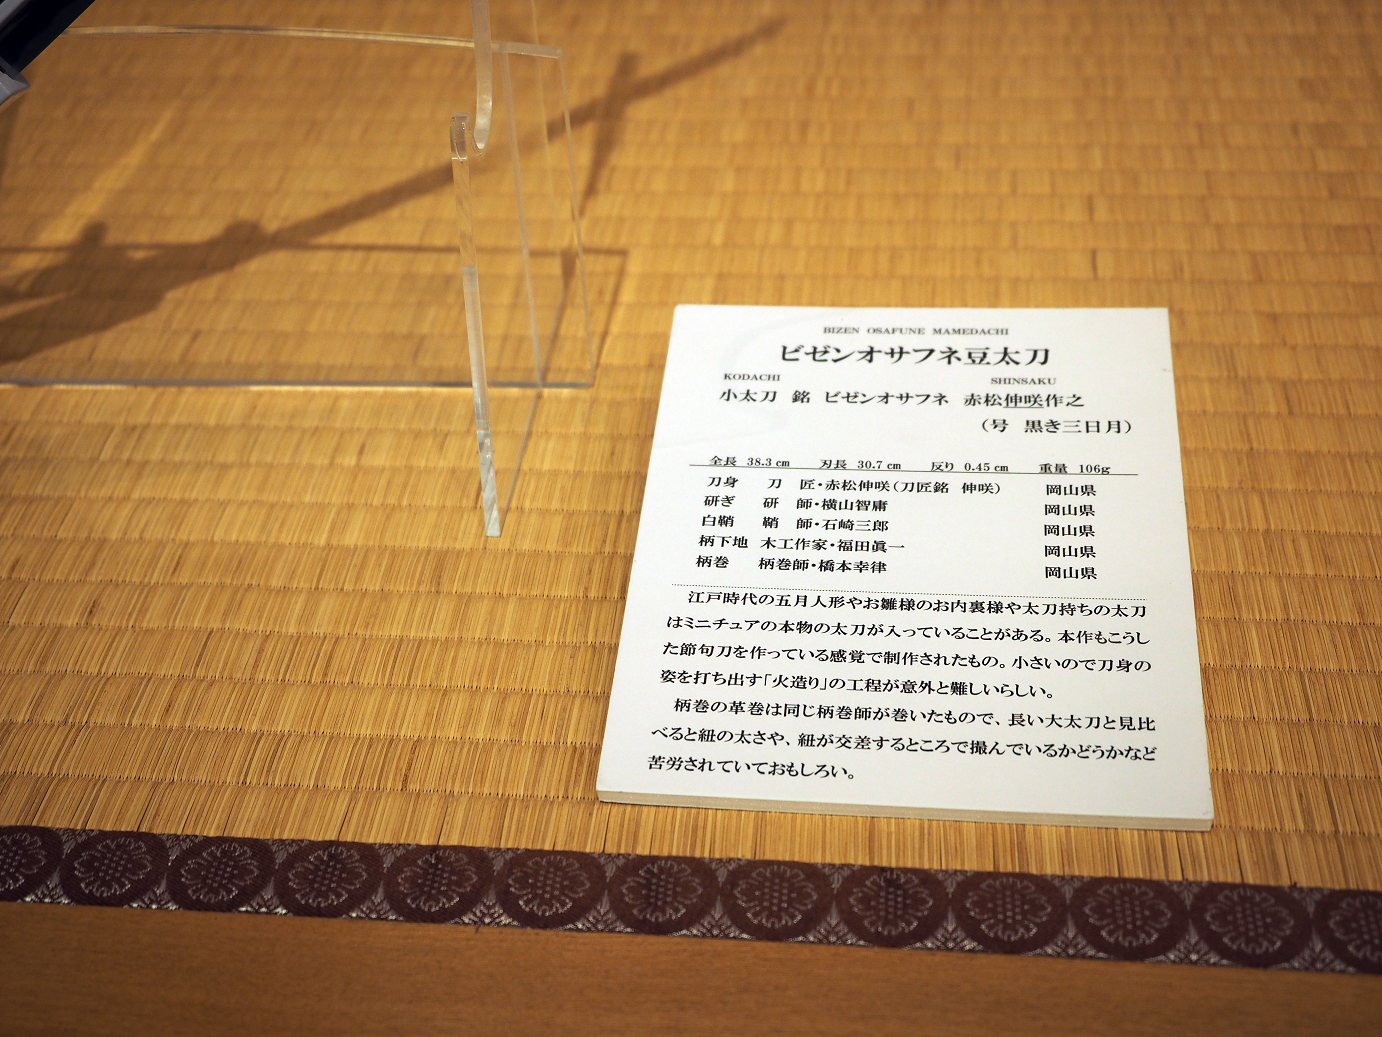 BIZEN OSAFUNE MAMEDACHI
ビゼンオサフネ豆太刀
KODACHI SHINSAKU
小太刀 銘 ビゼンオサフネ 赤松伸咲作之
(号 黒き三日月)
全長 38.3㎝ 刃長 30.7㎝ 反り 0.45㎝ 重量 106g
刀身 刀匠・赤松伸咲(刀匠銘 伸咲) 岡山県
研ぎ 研師・横山智庸 岡山県
白鞘 鞘師・石崎三郎 岡山県
柄下地 木工作家・福田眞一 岡山県
柄巻 柄巻師・橋本幸律 岡山県
江戸時代の五月人形やお雛様のお内裏様や太刀持ちの太刀
はミニチュアの本物の太刀が入っていることがある。本作もこうし
た節句刀を作っている感覚で制作されたもの。小さいので刀身の
姿を打ち出す「火造り」の工程が意外と難しいらしい。
柄巻の革巻は同じ柄巻師が巻いたもので、長い大太刀と見比
べると紐の太さや、紐が交差するところで撮んでいるかどうかなど
苦労されていておもしろい。